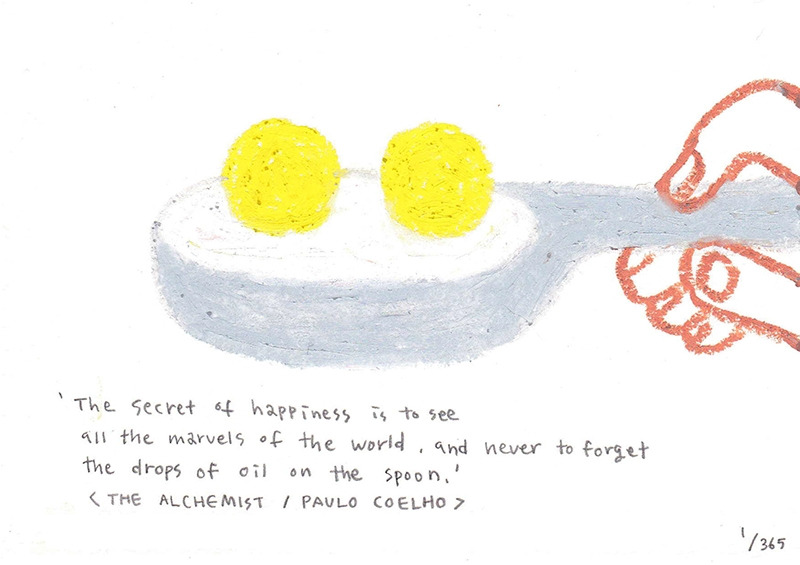 'The secret of happiness is to see
all the marvels of the world, and never to forget
the drops of oil on the spoon.'
<THE ALCHEMIST / PAULO COELHO>
1/365